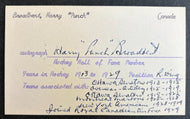 Broadbent, Harry "Punch" Canada
autograph Harry "Punch" Broadbent
Hockey Hall of Fame Member
Years in Hockey 1913 to 1929 Position R. Wing
Ottawa Senators 1912-1915
Overseas 1915-1918
Ottawa Senators 1918-1924
Montreal Maroons 1924-1927
New York Americans 1928-1929
joined Royal Canadian Air Force